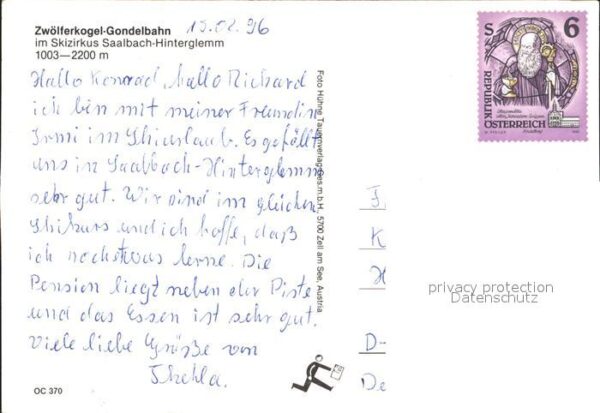 Zwölferkogel-Gondelbahn
im Skizirkus Saalbach-Hinterglemm
1003—2200 m
15.02.96
Hallo Konrad, hallo Richard
ich bin mit meiner Freundin
Irmi im Skiurlaub. Es gefällt
uns in Saalbach-Hinterglemm
sehr gut. Wir sind im gleichen
Skikurs und ich hoffe, daß
ich noch etwas lerne. Die
Pension liegt neben der Piste
und das Essen ist sehr gut.
Viele liebe Grüße von
Thekla.
OC 370
Foto Hühne Taurunverlagges.m.b.H., 5700 Zell am See, Austria
S 6
REPUBLIK
ÖSTERREICH
F
K
H
D-
De
privacy protection
Datenschutz